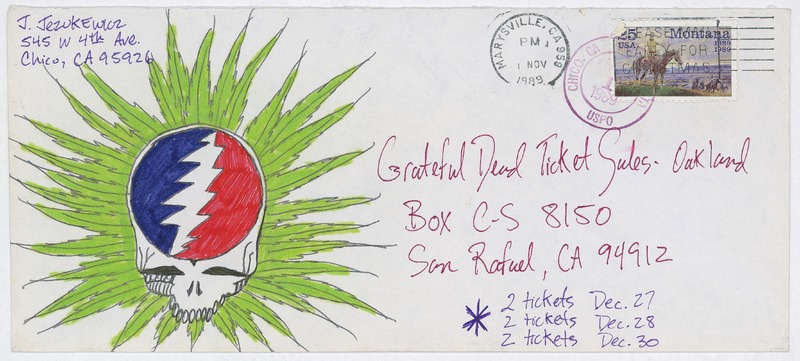 J. Jezukewicz
545 W 4th Ave.
Chico, CA 95926
MARYSVILLE, CA 959
PM
1 NOV
1989
CHICO, CA
1
1989
USPO
25
USA
Montana
1889
1989
Grateful Dead Ticket Sales - Oakland
Box C-S 8150
San Rafael, CA 94912
* 2 tickets Dec. 27
2 tickets Dec. 28
2 tickets Dec. 30